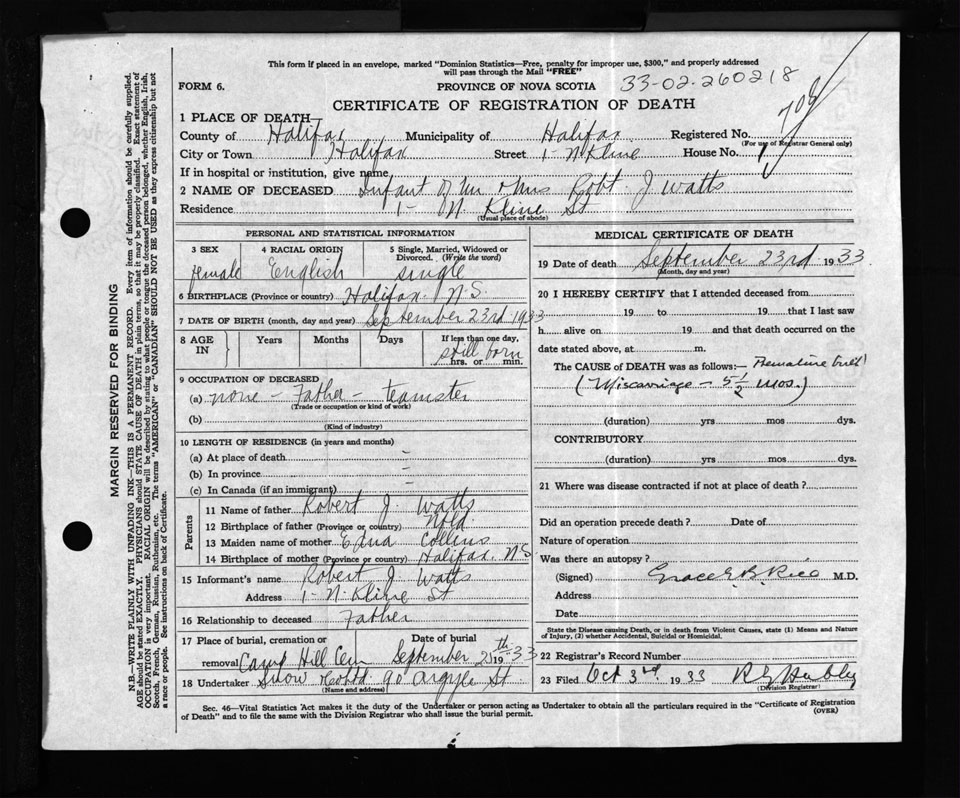 This form if placed in an envelope, marked "Dominion Statistics—Free, penalty for improper use, $300," and properly addressed
will pass through the Mail "FREE"
FORM 6.
PROVINCE OF NOVA SCOTIA
33-02-260218
CERTIFICATE OF REGISTRATION OF DEATH
1 PLACE OF DEATH
County of Halifax Municipality of Halifax Registered No.
(For use of Registrar General only)
City or Town Halifax Street 1- N Kline House No. 1
If in hospital or institution, give name
2 NAME OF DECEASED Infant of Mr & Mrs Robt. J Watts
Residence 1- N Kline St
(Usual place of abode)
PERSONAL AND STATISTICAL INFORMATION
3 SEX 4 RACIAL ORIGIN 5 Single, Married, Widowed or
Divorced. (Write the word)
female English single
6 BIRTHPLACE (Province or country) Halifax N.S
7 DATE OF BIRTH (month, day and year) September 23rd 1933
8 AGE IN Years Months Days If less than one day,
still born
hrs. or min.
9 OCCUPATION OF DECEASED
(a) none - Father - teamster
(Trade or occupation or kind of work)
(b)
(Kind of industry)
10 LENGTH OF RESIDENCE (in years and months)
(a) At place of death -
(b) In province -
(c) In Canada (if an immigrant)
Parents
11 Name of father Robert J. Watts
12 Birthplace of father (Province or country) Nfld
13 Maiden name of mother Edna Collins
14 Birthplace of mother (Province or country) Halifax N.S
15 Informant's name Robert J Watts
Address 1- N. Kline St
16 Relationship to deceased Father
17 Place of burial, cremation or Date of burial
removal Camp Hill Cem September 25th 1933
18 Undertaker Snow & Co Ltd 90 Argyle St
(Name and address)
MEDICAL CERTIFICATE OF DEATH
19 Date of death September 23rd 1933
(Month, day and year)
20 I HEREBY CERTIFY that I attended deceased from
19 to 19 that I last saw
h alive on 19 and that death occurred on the
date stated above, at m.
The CAUSE of DEATH was as follows:— Premature birth
(Miscarriage - 5 1/2 mos.)
(duration) yrs mos dys.
CONTRIBUTORY
(duration) yrs mos dys.
21 Where was disease contracted if not at place of death?
Did an operation precede death? Date of
Nature of operation
Was there an autopsy?
(Signed) Grace E B Rice M.D.
Address
Date
State the Disease causing Death, or in death from Violent Causes, state (1) Means and Nature
of Injury, (2) whether Accidental, Suicidal or Homicidal.
22 Registrar's Record Number
23 Filed Oct 3rd 1933
(Division Registrar)
Sec. 46—Vital Statistics Act makes it the duty of the Undertaker or person acting as Undertaker to obtain all the particulars required in the "Certificate of Registration
of Death" and to file the same with the Division Registrar who shall issue the burial permit. (OVER)
MARGIN RESERVED FOR BINDING
N.B.—WRITE PLAINLY WITH UNFADING INK—THIS IS A PERMANENT RECORD. Every item of information should be carefully supplied.
AGE should be stated EXACTLY. PHYSICIANS should STATE CAUSE OF DEATH in plain terms, so that it may be properly classified. Exact statement of
OCCUPATION is very important. RACIAL ORIGIN will be described by stating to what people or tongue the deceased person belonged, whether English, Irish,
Scotch, French, German, Russian, Ruthenian, etc. The terms "AMERICAN" or "CANADIAN" SHOULD NOT BE USED as they express citizenship but not
a race or people. See instructions on back of Certificate.